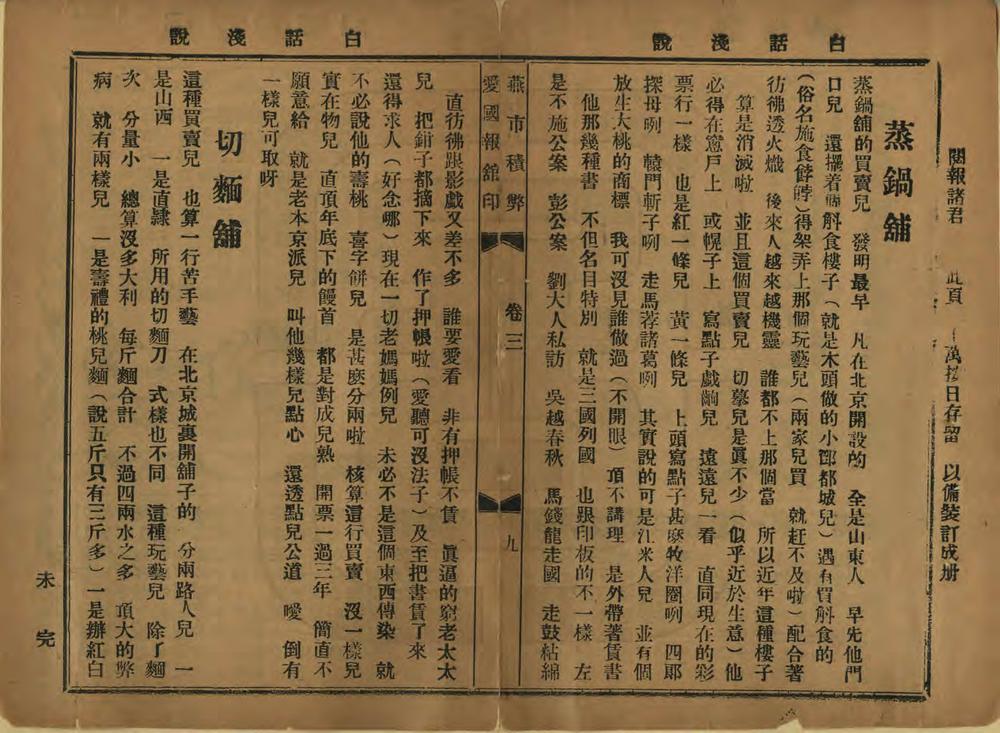 白話淺說
白話淺說
閱報諸君 此頁 萬按日存留 以備裝訂成册
蒸鍋舖
蒸鍋舖的買賣兒 發明最早 凡在北京開設的 全是山東人 早先他門
口兒 還擺着斛食樓子(就是木頭做的小酆都城兒)遇有買斛食的
(俗名施食餑餑)得架弄上那個玩藝兒(兩家兒買 就赶不及啦)配合著
彷彿透火熾 後來人越來越機靈 誰都不上那個當 所以近年這種樓子
算是消滅啦 並且這個買賣兒 切摹兒是眞不少(似乎近於生意)他
必得在窻戶上 或幌子上 寫點子戲齣兒 遠遠兒一看 直同現在的彩
票行一樣 也是紅一條兒 黃一條兒 上頭寫點子甚麽牧洋圈咧 四郎
探母咧 轅門斬子咧 走馬荐諸葛咧 其實說的可是江米人兒 並有個
放生大桃的商標 我可沒見誰做過(不開眼)頂不講理 是外帶著賃書
他那幾種書 不但名目特別 就是三國列國 也跟印板的不一樣 左
是不施公案 彭公案 劉大人私訪 吳越春秋 馬錢龍走國 走鼓粘綿
燕市積弊 卷三 九
愛國報舘印
直彷彿跟影戲又差不多 誰要愛看 非有押帳不賃 眞逼的窮老太太
兒 把鉗子都摘下來 作了押帳啦(愛聽可沒法子)及至把書賃了來
還得求人(好念哪)現在一切老媽媽例兒 未必不是這個東西傳染 就
不必說他的壽桃 喜字餅兒 是甚麽分兩啦 核算這行買賣 沒一樣兒
實在物兒 直頂年底下的饅首 都是對成兒熟 開票一過三年 簡直不
願意給 就是老本京派兒 叫他幾樣兒點心 還透點兒公道 噯 倒有
一樣兒可取呀
切麵舖
這種買賣兒 也算一行苦手藝 在北京城裏開舖子的 分兩路人兒 一
是山西 一是直隸 所用的切麵刀 式樣也不同 這種玩藝兒 除了麵
次 分量小 總算沒多大利 每斤麵合計 不過四兩水之多 頂大的弊
病 就有兩樣兒 一是壽禮的桃兒麵(說五斤只有三斤多)一是辦紅白
未完